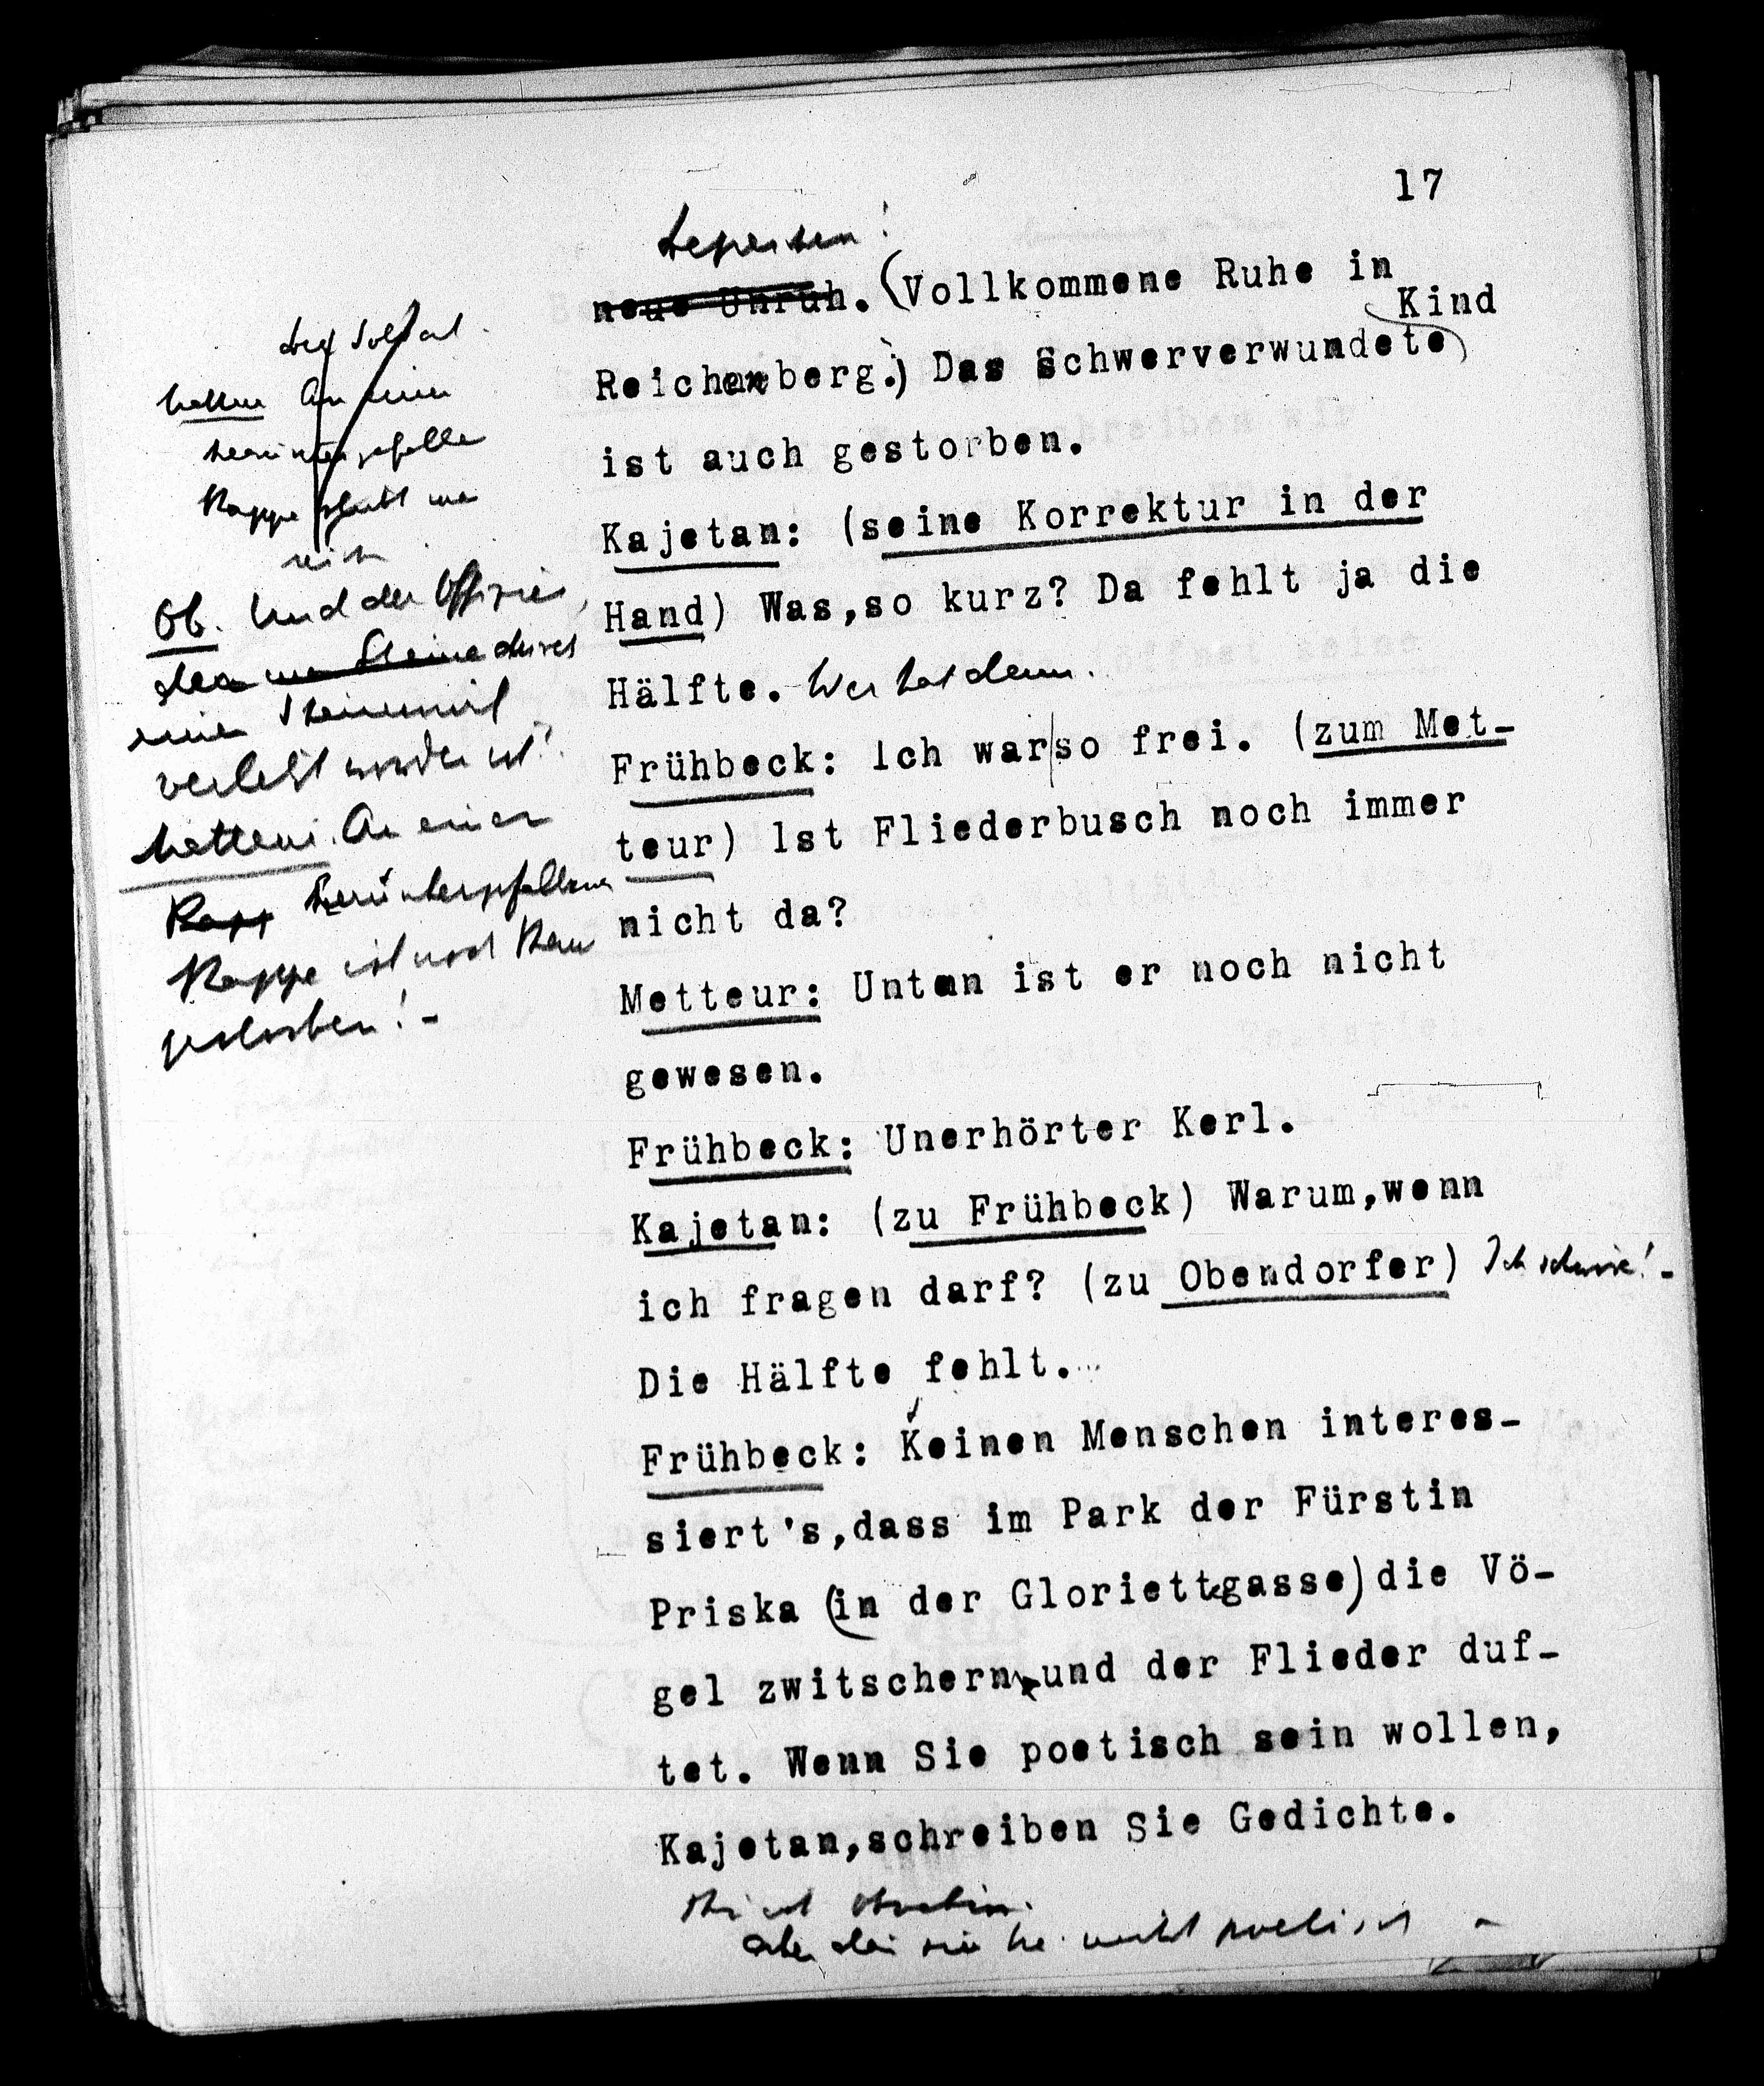 17
Depeschen!
neue Unruh. (Vollkommene Ruhe in
Kind
Reichenberg.) Das Schwerverwundete)
ist auch gestorben.
Kajetan: (seine Korrektur in der
Hand) Was,so kurz? Da fehlt ja die
Hälfte. Wer hat denn.
Frühbeck: Ich war so frei. (zum Met-
teur) Ist Fliederbusch noch immer
nicht da?
Metteur: Unten ist er noch nicht
gewesen.
Frühbeck: Unerhörter Kerl.
Kajetan: (zu Frühbeck) Warum,wenn
ich fragen darf? (zu Obendorfer)
Die Hälfte fehlt.
Frühbeck: Keinen Menschen interes-
siert's,dass im Park der Fürstin
Priska (in der Gloriettegasse) die Vö-
gel zwitschern und der Flieder duf-
tet. Wenn Sie poetisch sein wollen,
Kajetan,schreiben Sie Gedichte.
Soldat
An einer
Kappe
Ob. Und der Offizier,
der durch
einen Steinwurf
verletzt worden ist?
An einer
heruntergefallenen
Kappe ist noch kein
gestorben! -
nicht poetisch